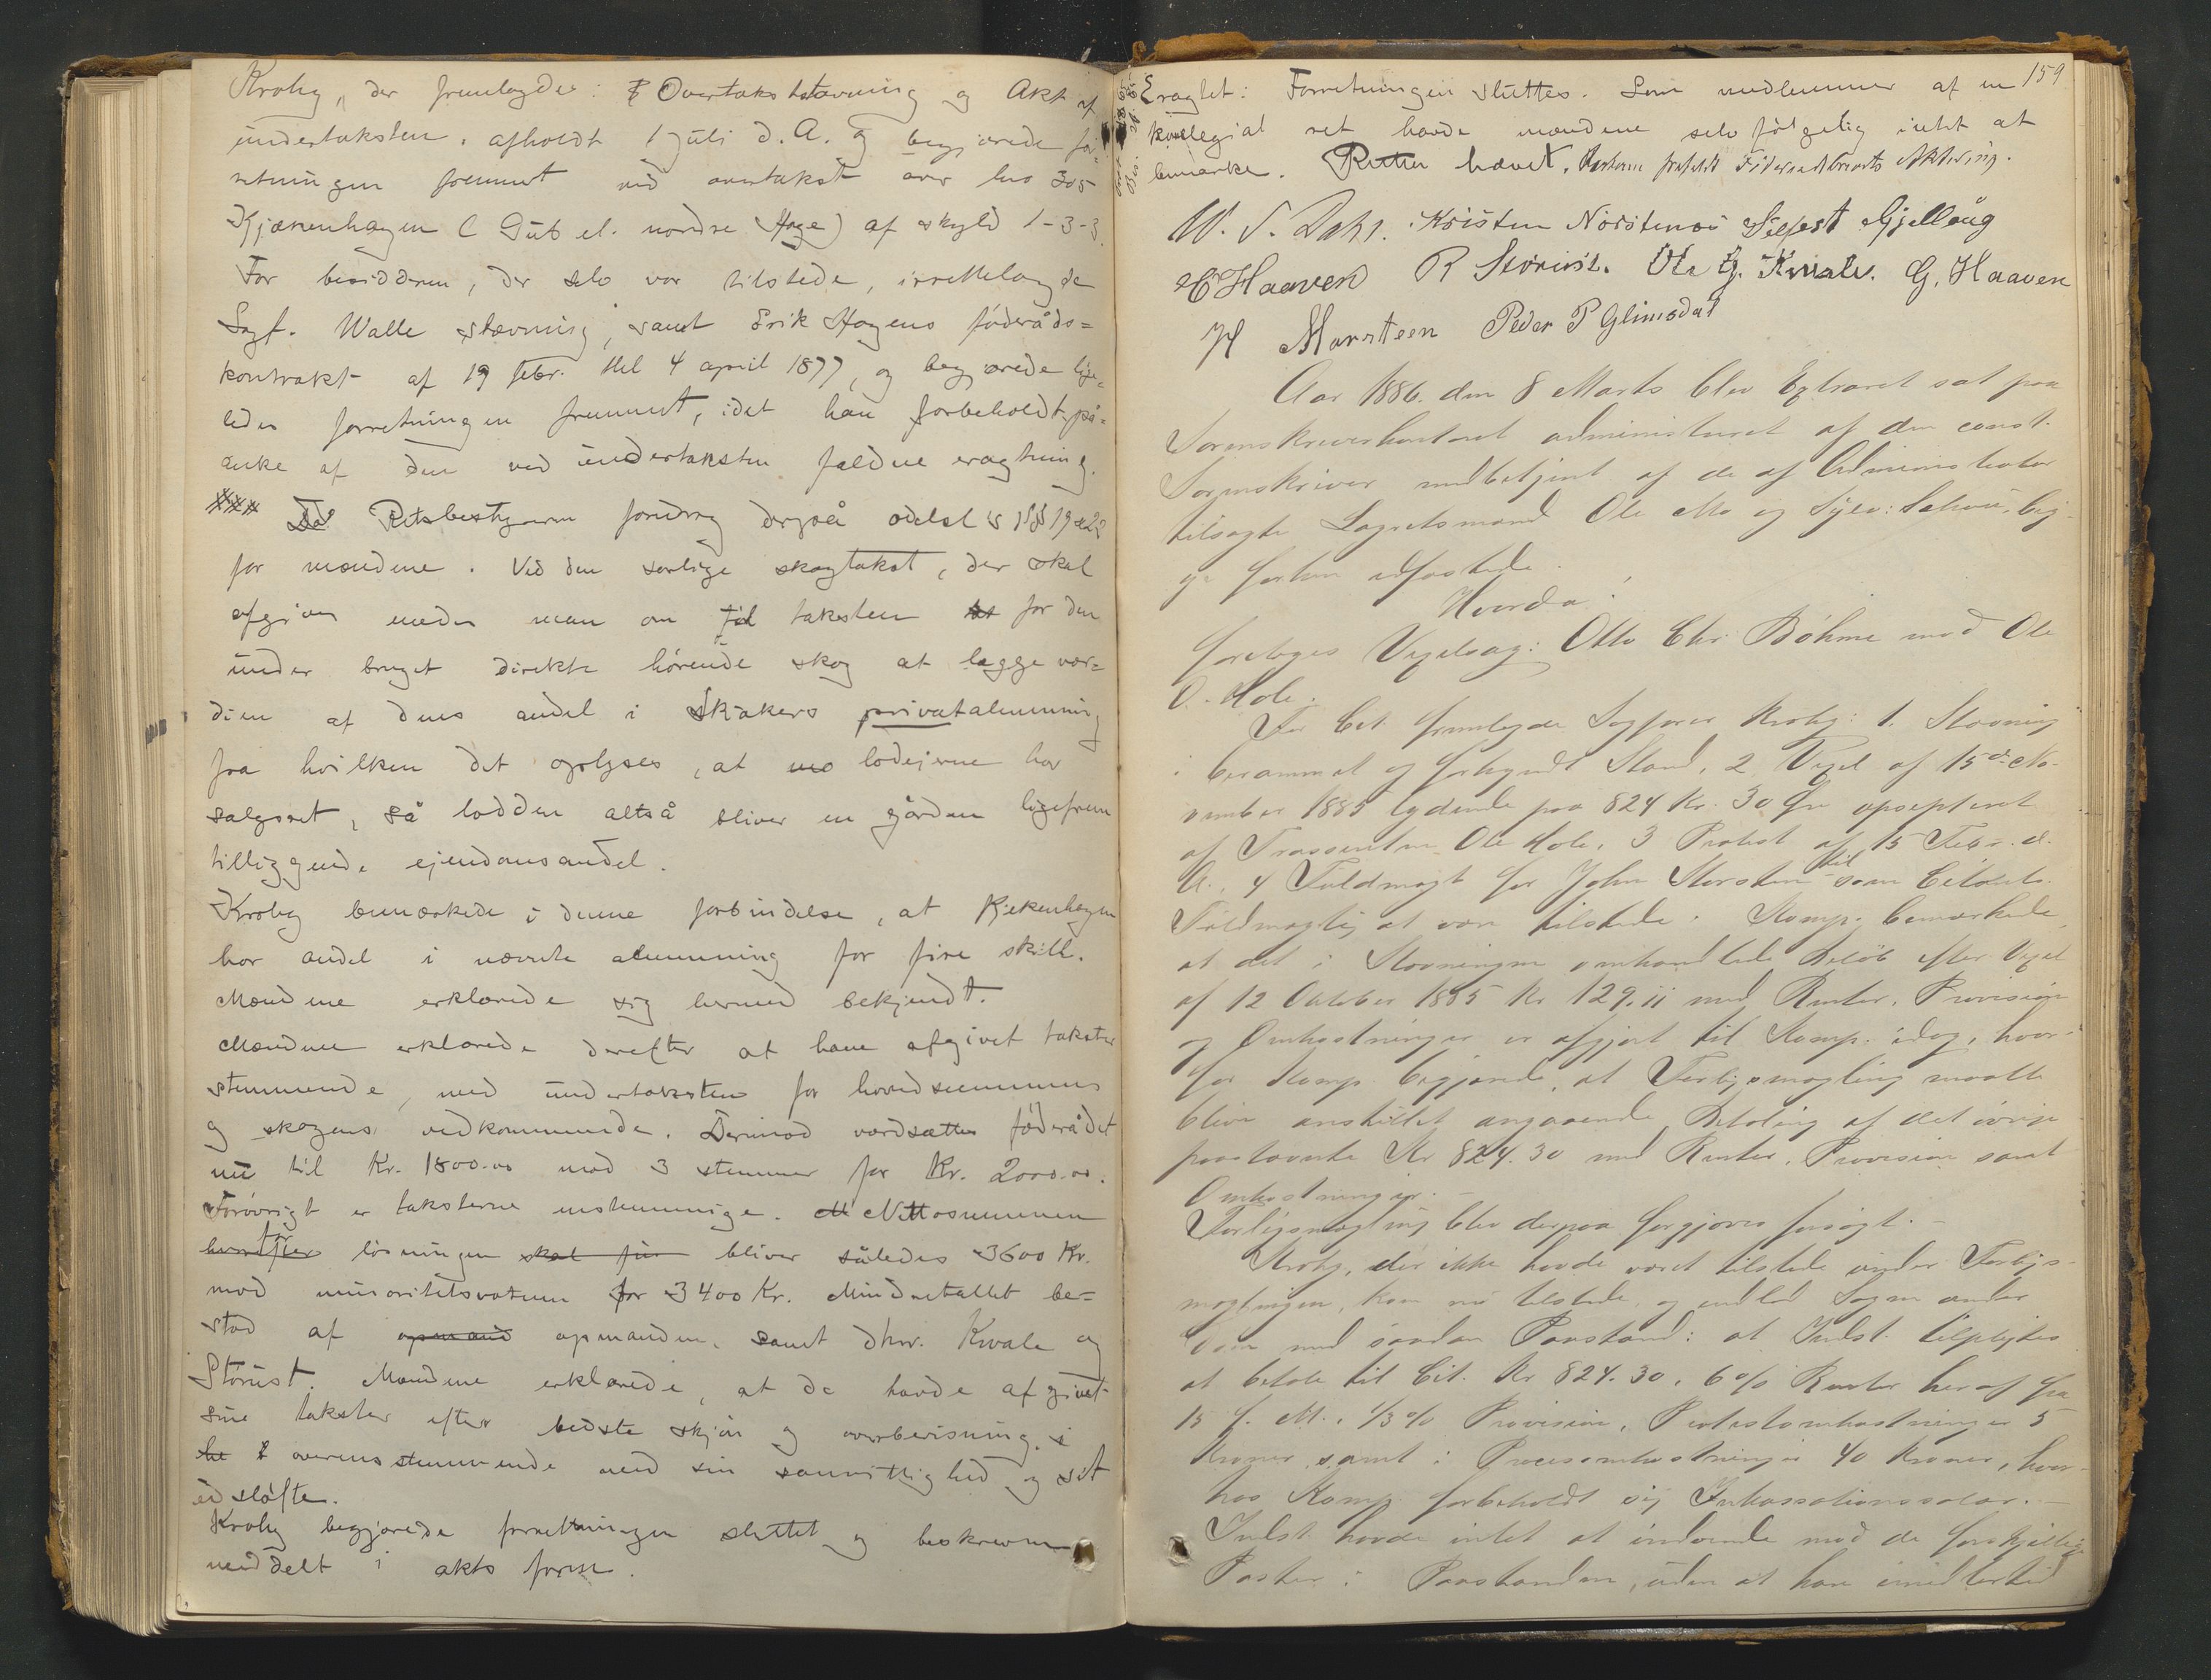 Krohg, der fremlagdes: Overtakststævning og Akt af
undertaksten, afholdt 1 juli d. A. og begjærede for-
retningen fremmet ved overtakst over lno 305
Kjækenhagen (Gub el. nordre Hage) af skyld 1-3-3.
For besidderen, der selv var tilstede, irettelagde
Sagf. Walle stævning, samt Erik Hagens føderåds=
kontrakt af 19 febr. thl 4 april 1877, og begjærede lige=
ledes forretningen fremmet, idet han forbeholdt på=
anke af den ved undertaksten faldne eragtning.
Retsbestyreren foredrog derpå odelsl's §§ 19 & 22
for mændene. Ved den særlige skogtakst, der skal
afgives enedes man om til taksten for den
under bruget direkte hørende skog at lægge vær=
dien af dens andel i Skåkers privatalmenning
fra hvilken det oplyses, at lodejerne har
salgsret, så lodden altså bliver en gården ligefrem
tilliggende ejendomsandel.
Krohg bemærkede i denne forbindelse, at Kjekenhagen
har andel i nævnte almenning for fire skill.
Mændene erklærede sig hermed bekjendt.
Mændene erklærede derefter at have afgivet takster
stemmende med undertaksten for hovedsummens
og skogens vedkommende. Derimod værdsættes føderådet
nu til Kr. 1800.00 mod 3 stemmer for Kr. 2000.00.
Forøvrigt er taksterne enstemmige. Nettosummen
for løsningen skal bliver således 3600 Kr.
mod minoritetsvotum for 3400 Kr. Mindretallet be=
stod af opmand opmanden, samt dhrr. Kvale og
Storust. Mændene erklærede, at de havde afgivet
sine takster efter bedste skjøn og overbevisning,
overensstemmende med sin samvittighed og sit
edsløfte.
Krohg begjærede forretningen sluttet og beskreven
meddelt i akts form.
159
Eragtet: Forretningen sluttes. Som medlemmer af en
kollegial ret havde mændene selvfølgelig intet at
bemærke. Retten hævet.
W. S. Dahl. Kristen Nordstenøi Silfest Gjellaug
C Haaven R Storust. Ole G. Kvale. G. Haaven
H Marsteen Peder P Glimsdal
Aar 1886 den 8 Marts blev Extraret sat paa
Sorenskriverkontoret administreret af den const.
Sorenskriver medbetjent af de af Administrator
tilsagte Lagretsmænd Ole Mo og Sylv:
Hvorda:
foretoges Vexelsag: Otto Chr. Bøhme mod Ole
O. Hole.
For Cit. fremlagde Sagfører Krohg: 1. Stævning
i berammet og forkyndt Stand, 2 Vexel af 15de No-
vember 1885 lydende paa 824 Kr. 30 Øre accepteret
af Trassenten Ole Hole, 3 Protest af 15 Febr. d.
A., 4 Fuldmagt for John Storsten til som Citantens
Fuldmægtig at være tilstede. Komp. bemærkede
at det i Stævningen omhandlede Beløb efter Vexel
af 12 Oktober 1885 Kr 129.11 med Renter, Provision
og Omkostninger er afgjort til Komp. idag, hvor-
for Komp. begjærede, at Forligsmægling maatte
blive anstillet angaaende Betaling af det øvrige
paastævnte Kr 824.30 med Renter, Provision samt
Omkostninger. -
Forligsmægling blev derpaa forgjæves forsøgt. -
Krohg, der ikke havde været tilstede under Forligs-
mæglingen, kom nu tilstede og indlod Sagen under
Dom med saadan Paastand: at Indst. tilpligtes
at betale til Cit. Kr 824.30, 6 % Renter heraf fra
15 f. M., 1/3 % Provision, Protestomkostninger 5
Kroner samt i Procesomkostninger 40 Kroner, hvor-
hos Komp. forbeholdt sig Inkassationssalær. -
Indst. havde intet at indvende mod de forskjellige
Poster i Paastanden, uden at han imidlertid